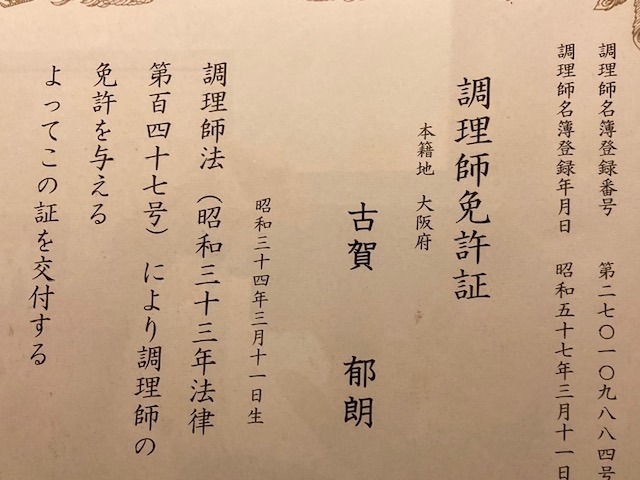 調理師名簿登録番号　第二七〇一〇九八八四号
調理師名簿登録年月日　昭和五十七年三月十一日
調理師免許証
本籍地　大阪府
古賀　郁朗
昭和三十四年三月十一日生
調理師法（昭和三十三年法律
第百四十七号）により調理師の
免許を与える
よってこの証を交付する